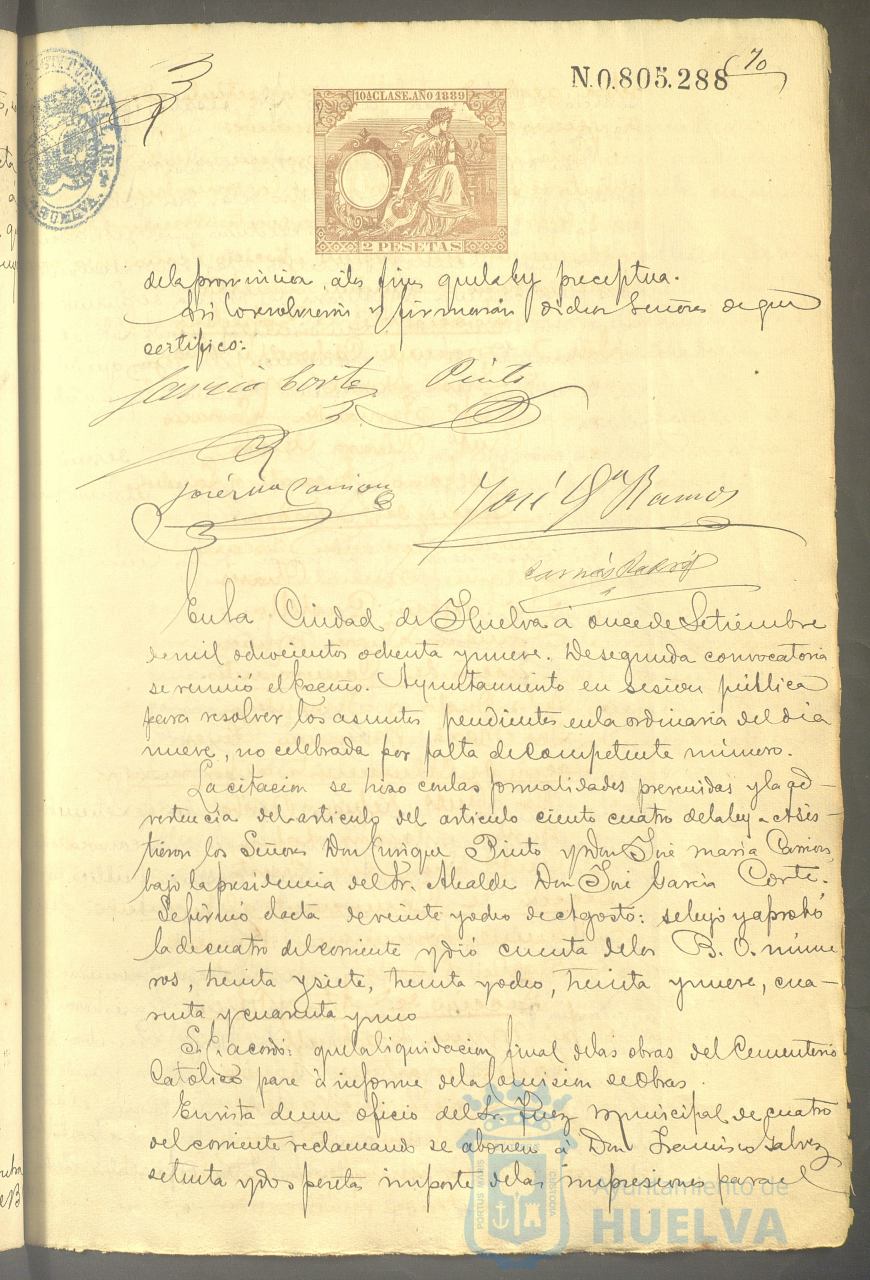 N.0.805.288
70
10ª CLASE. AÑO 1889
2 PESETAS
HUELVA
de la provincia, á los fines que la ley preceptua.
Asi lo resolvieron y firmarán dichos Señores de que
certifico:
Garcia Corte Pinto
José Mª Carrion
José Gª Ramos
En la Ciudad de Huelva á once de Setiembre
de mil ochocientos ochenta y nueve. De segunda convocatoria
se reunió el Excmo. Ayuntamiento en sesion pública
para resolver los asuntos pendientes en la ordinaria del dia
nueve, no celebrada por falta de competente número.
La citacion se hizo con las formalidades prevenidas y la ad-
vertencia del articulo del articulo ciento cuatro de la ley. Asis-
tieron los Señores Don Enrique Pinto y Don José Maria Carrion,
bajo la presidencia del Sr. Alcalde Don José Garcia Corte.
Se firmó el acta de veinte y ocho de Agosto: se leyó y aprobó
la de cuatro del corriente y dió cuenta de los B. O. núme-
ros, treinta y siete, treinta y ocho, treinta y nueve, cua-
renta, y cuarenta y uno
S. E. acordó: que la liquidacion final de las obras del Cementerio
Católico pase á informe de la Comision de Obras.
En vista de un oficio del Sr. Juez municipal de cuatro
del corriente reclamando se abonen á Don Francisco Galvez
setenta y dos pesetas importe de las impresiones para el
PORTUS MARIS
CUSTODIA
Ayuntamiento de
HUELVA